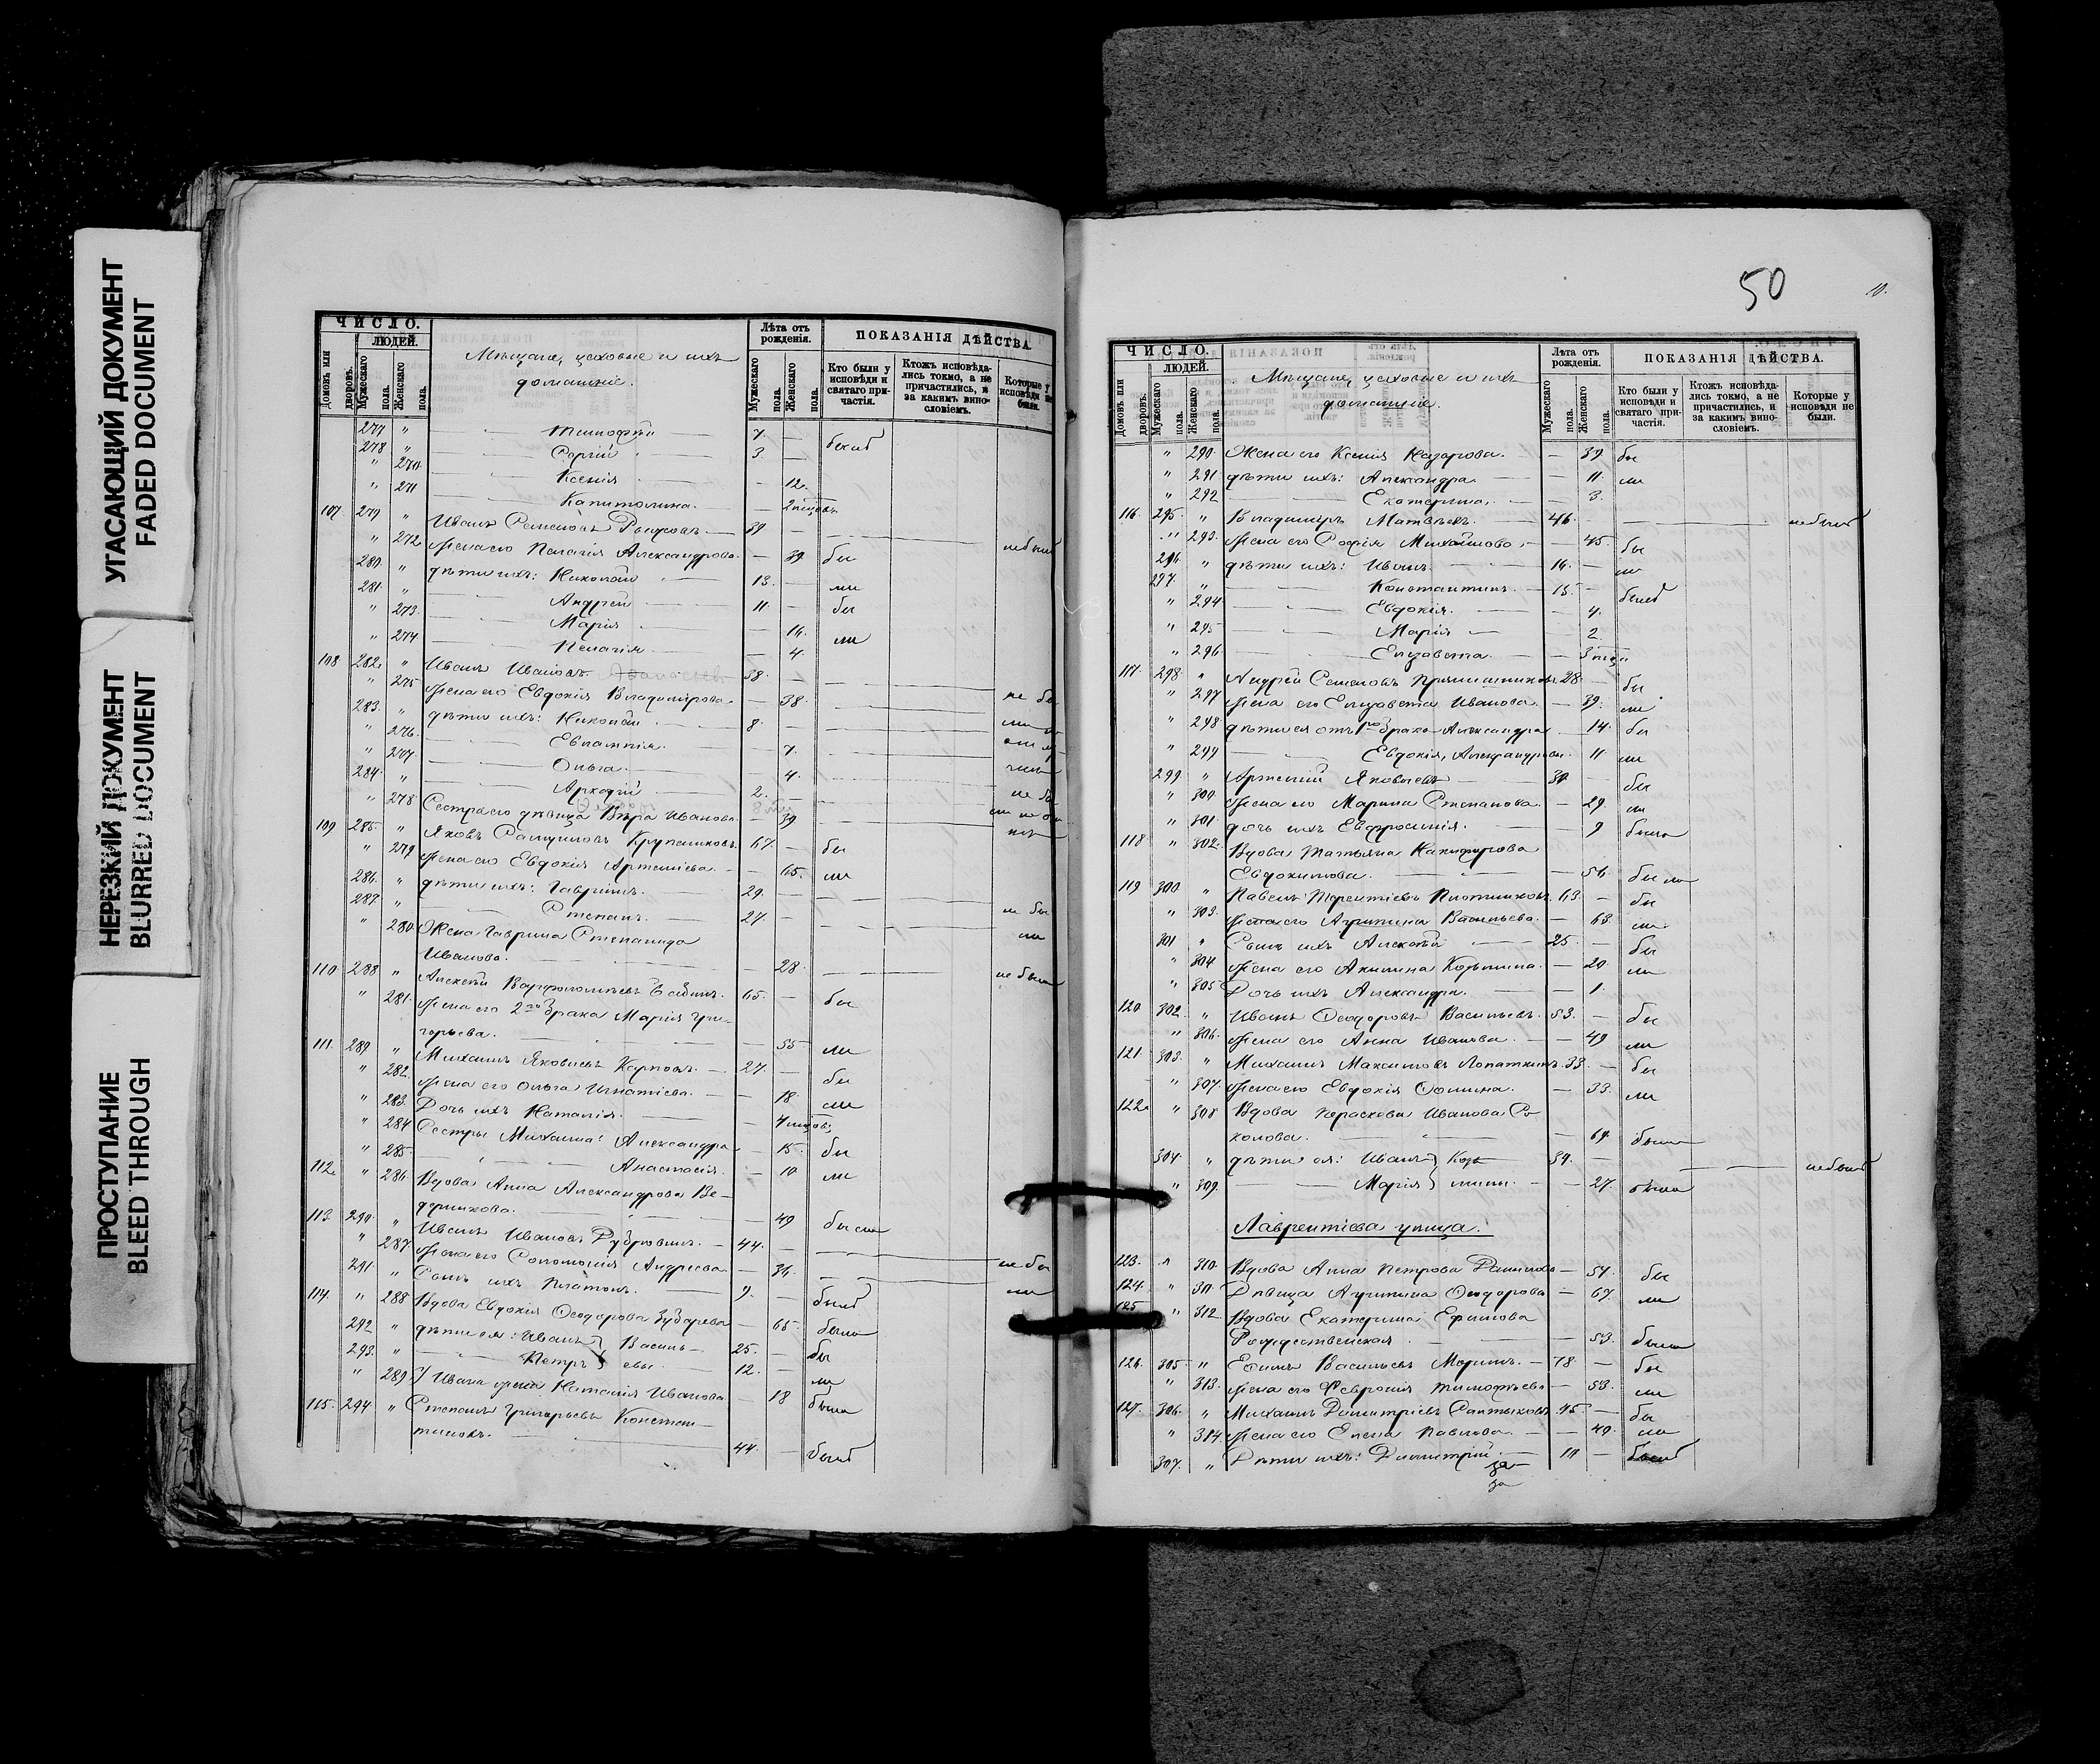 УГАСАЮЩИЙ ДОКУМЕНТ
FADED DOCUMENT
НЕРЕЗКИЙ ДОКУМЕНТ
BLURRED DOCUMENT
ПРОСТУПАНИЕ
BLEED THROUGH
ЧИСЛО.
ЛЮДЕЙ.
домовъ или дворовъ.
Мужескаго пола.
Женскаго пола.
Мѣщане, цеховые и ихъ
домашніе.
Лѣта отъ рожденія.
Мужескаго пола.
Женскаго пола.
ПОКАЗАНІЯ ДѢЙСТВА.
Кто были у исповѣди и святаго причастія.
Ктожъ исповѣдались токмо, а не причастились, и за какимъ винословіемъ.
Которые у исповѣди не были.
277 " Тимофей 7. —
278 " Сергій 3. — были
" 270 Ксенія — 12.
" 271 Капитолина. —
107. 279 " Иванъ Семеновъ 39 — небылъ
" 272 Жена его Пелагія Александрова — 39 бы
280. " дѣти ихъ: Николай 13. — ли
281. " Андрей 11. — бы
" 273. Марія — 14. ли
" 274. Пелагія — 4.
108 282. " Иванъ Ивановъ 38. — не бы
" 275 Жена его Евдокія Владимірова — 38.
283. " дѣти ихъ: Николай 8. —
" 276. Евлампія. — 7.
" 277 Ольга — 4.
284. " Аркадій 2. —
" 278 Сестра его дѣвица Вѣра Иванова — 39
109 285. " Яковъ Крупениковъ 67. — бы
" 279 Жена его Евдокія Артеміева — 65. ли
286. " дѣти ихъ: Гавріилъ. 29. —
287. " Степанъ. 27. — не бы
" 280 Жена Гавріила Степанида ли
Иванова. — 28.
110 288 " Алексѣй Варфоломеевъ 65. — бы
" 281. Жена его 2го брака Марія Гри-
горьева. — 55 ли
111. 289 " Михаилъ Яковлевъ Карповъ. 27. — бы
" 282. Жена его Ольга Игнатіева. — 18. ли
" 283. Дочь ихъ Наталія. —
" 284 Сестры Михаила: Александра — 15. бы
" 285. Анастасія. — 10 ли
112. " 286. Вдова Анна Александрова Ве-
дерникова. — 49 была
113. 290. " Иванъ Ивановъ 44. —
" 287. Жена его Соломонія Андреева — 36. не бы
291. " Сынъ ихъ Платонъ. 9. — былъ
114. " 288 Вдова Евдокія Ѳеодорова Зубарева — 65. была
292 " дѣти ея: Иванъ } Василь- 25. — бы
293. " Петръ } евы. 12. — ли
" 289. У Ивана жена Наталія Иванова — 18 была
115. 294. " Степанъ Григорьевъ Констан-
тиновъ. 44. — былъ
50
10.
ЧИСЛО.
ЛЮДЕЙ.
домовъ или дворовъ.
Мужескаго пола.
Женскаго пола.
Мѣщане, цеховые и ихъ
домашніе.
Лѣта отъ рожденія.
Мужескаго пола.
Женскаго пола.
ПОКАЗАНІЯ ДѢЙСТВА.
Кто были у исповѣди и святаго причастія.
Ктожъ исповѣдались токмо, а не причастились, и за какимъ винословіемъ.
Которые у исповѣди не были.
" 290. Жена его Ксенія Назарова. — 39 бы
" 291 дѣти ихъ: Александра — 11. ли
" 292 Екатерина. — 3.
116. 295. " Владиміръ Матвѣевъ. 46. — небылъ
" 293. Жена его Софія Михайлова. — 45. бы
296. " дѣти ихъ: Иванъ. 16. — ли
297. " Константинъ. 15. — былъ
" 294 Евдокія. — 4.
" 295 Марія — 2.
" 296 Елизавета. —
117. 298. " Андрей Семеновъ Прянишниковъ. 28. — бы
" 297 Жена его Елизавета Иванова. — 39. ли
" 298 дѣти ея отъ 1го брака Александра — 14. бы
" 299 Евдокія, Александровы. — 11 ли
299. " Артемій Яковлевъ — бы
" 300 Жена его Марина Степанова. — 29. ли
" 301. дочь ихъ Евфросинія. — 9 была
118 " 302. Вдова Татьяна Никифорова
Евдокимова. — 56. была
119 300 " Павелъ Терентіевъ Плотниковъ. 63. — бы
" 303. Жена его Агрипина Васильева. — 63. ли
301 " Сынъ ихъ Алексѣй 25. — бы
" 304 Жена его Акилина Козьмина. — 20. ли
" 305 Дочь ихъ Александра. — 1.
120 302. " Иванъ Ѳеодоровъ Васильевъ. 53. — бы
" 306. Жена его Анна Иванова. — 49 ли
121. 303. " Михаилъ Максимовъ Лопаткинъ. 33. — бы
" 307. Жена его Евдокія Ѳомина. — 33. ли
122. " 308 Вдова Параскева Иванова Со-
колова. — 64. была
304. " дѣти ея: Иванъ } Козь- 34. — небылъ
" 309. Марія } мины. — 27. была
Лаврентіева улица.
123. " 310. Вдова Анна Петрова — 54. бы
124. " 311. Дѣвица Агрипина Ѳеодорова — 67. ли
125 " 312. Вдова Екатерина Ефимова
Рождественская — 53. была
126. 305. " Ефимъ Васильевъ 78. — бы
" 313. Жена его Февронія Тимофѣева — 53. ли
127. 306. " Михаилъ Димитріевъ Салтыковъ 45. — бы
" 314. Жена его Елена Павлова. — 40. ли
307. " Дѣти ихъ: Димитрій. — былъ